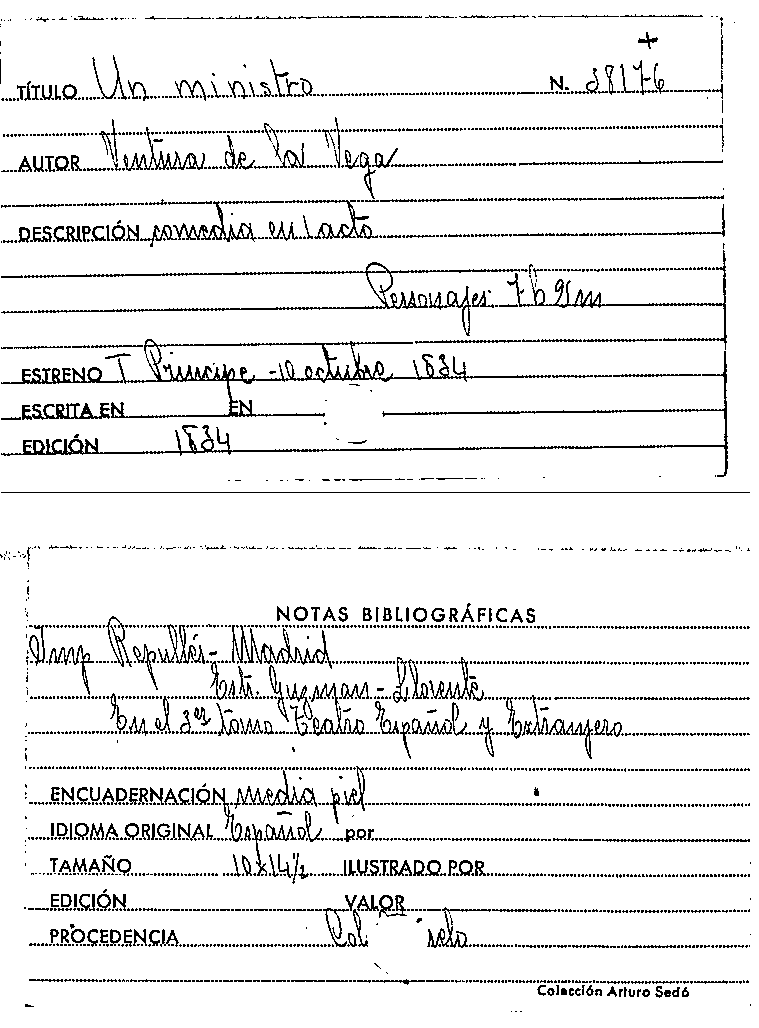 +
TÍTULO Un ministro N. 38176
AUTOR Ventura de la Vega
DESCRIPCIÓN comedia en 1 acto
Personajes 7 h 2 m
ESTRENO T Principe - 10 octubre 1834
ESCRITA EN EN
EDICIÓN 1834
NOTAS BIBLIOGRÁFICAS
Imp Repullés - Madrid
Estr. Guzman - Llorente
En el 3er tomo Teatro Español y Extranjero
ENCUADERNACIÓN media piel
IDIOMA ORIGINAL Español por
TAMAÑO 10x14½ ILUSTRADO POR
EDICIÓN VALOR
PROCEDENCIA Col
Colección Arturo Sedó